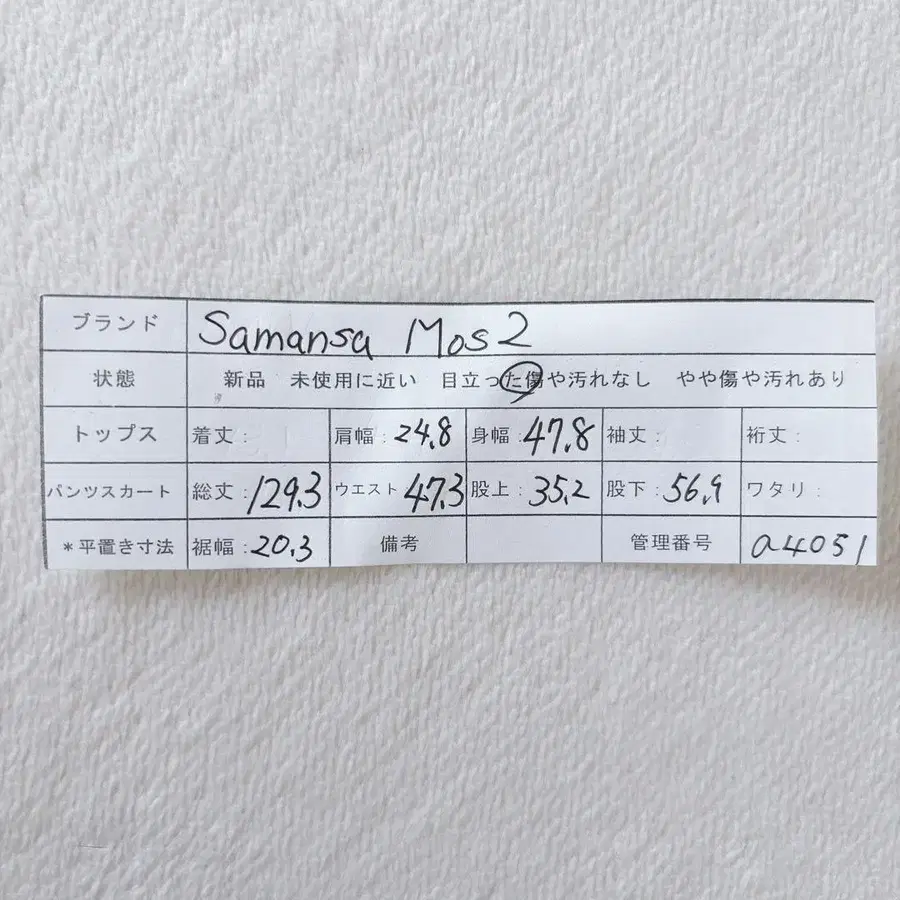 ブランド Samansa Mos2
状態 新品 未使用に近い 目立った傷や汚れなし やや傷や汚れあり
トップス 着丈: 肩幅: 24.8 身幅: 47.8 袖丈: 裄丈:
パンツスカート 総丈: 129.3 ウエスト 47.3 股上: 35.2 股下: 56.9 ワタリ:
*平置き寸法 裾幅: 20.3 備考 管理番号 a4051